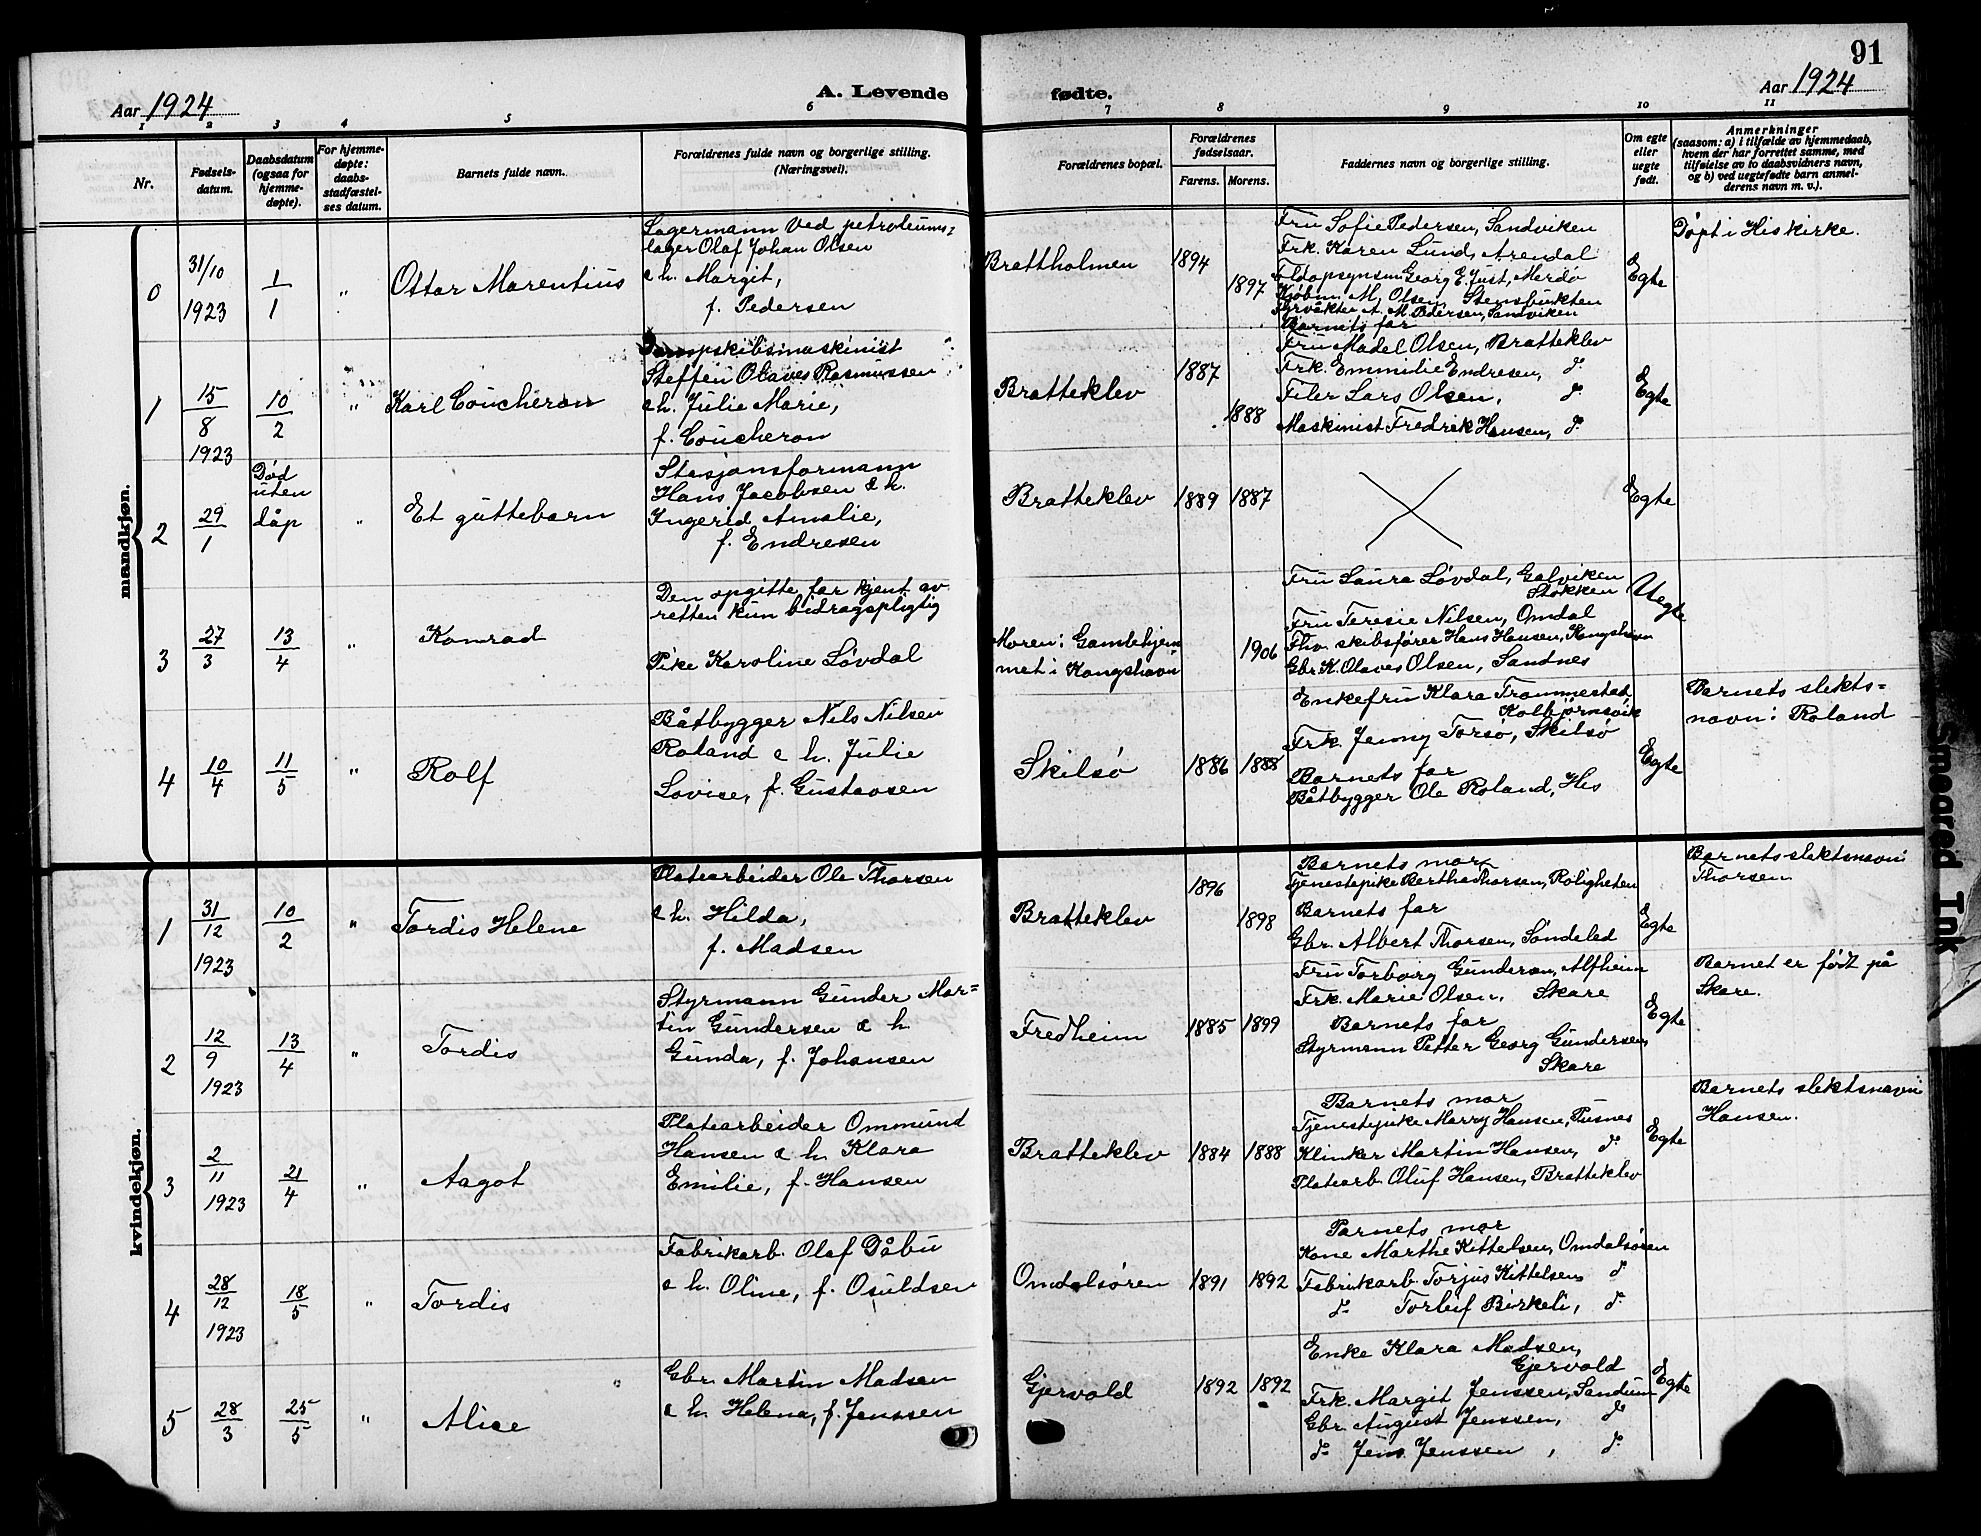 91
Aar 1924
A. Levende fødte.
Aar 1924
1 2 3 4 5 6 7 8 9 10 11
Nr.
Fødsels-
datum.
Daabsdatum
(ogsaa for
hjemme-
døpte).
For hjemme-
døpte:
daabs-
stadfæstel-
ses datum.
Barnets fulde navn.
Forældrenes fulde navn og borgerlige stilling.
(Næringsvei).
Forældrenes bopæl.
Forældrenes
fødselsaar.
Farens. Morens.
Faddernes navn og borgerlige stilling.
Om egte
eller
uegte
født.
Anmerkninger
(saasom: a) i tilfælde av hjemmedaab,
hvem der har forrettet samme, med
tilføielse av to daabsvidners navn,
og b) ved uegtefødte barn anmel-
derens navn m. v.).
mandkjøn.
0
31/10
1923
1/1
"
Ottar Marentius
Lagermann ved petroleums-
lager Olaf Johan Olsen
& h. Margit,
f. Pedersen
Brattholmen
1894
1897
Fru Sofie Pedersen, Sandviken
Frk. Karen Lund, Arendal
Georg E. Just, Merdø
Kjøbm. M. Olsen, Stensbukten
Fyrvåkter A. M. Pedersen, Sandviken
Barnets far
Egte
Døpt i His kirke.
1
15/8
1923
10/2
"
Karl Coucheron
Dampskibsmaskinist
Steffen Olaves Rasmussen
& h. Julie Marie,
f. Coucheron
Bratteklev
1887
1888
Fru Madel Olsen, Bratteklev
Frk. Emmilie Endresen, d°
Filer Lars Olsen, d°
Maskinist Fredrik Hansen, d°
Egte
2
29/1
Død
uten
dåp
"
Et guttebarn
Stasjonsformann
Hans Jacobsen & h.
Ingerid Amalie,
f. Endresen
Bratteklev
1889
1887
Egte
3
27/3
13/4
"
Konrad
Den opgitte far kjent av
retten kun bidragspligtig
Pike Karoline Løvdal
Moren: Gamlehjem
met i Kongshavn
1906
Fru Laura Løvdal, Galviken
Stokken
Fru Teresie Nilsen, Omdal
Fhv. skibsfører Hans Hansen, Kongshavn
Gbr. K. Olaves Olsen, Sandnes
Uegte
4
10/4
11/5
"
Rolf
Båtbygger Nils Nilsen
Roland & h. Julie
Lovise, f. Gustavsen
Skilsø
1886
1888
Enkefru Klara Trommestad
Kolbjørnsvik
Frk. Jenny Torsø, Skilsø
Barnets far
Båtbygger Ole Roland, His
Egte
Barnets slekts=
navn: Roland
kvindekjøn.
1
31/12
1923
10/2
"
Tordis Helene
Platearbeider Ole Thorsen
& h. Hilda,
f. Madsen
Bratteklev
1896
1898
Barnets mor
Tjenestepike Bertha Thorsen, Roligheten
Barnets far
Gbr. Albert Thorsen, Søndeled
Egte
Barnets slektsnavn:
Thorsen
2
12/9
1923
13/4
"
Tordis
Styrmann Gunder Mar=
tin Gundersen & h.
Gunda, f. Johansen
Fredheim
1885
1899
Fru Torborg Gunderson, Alfheim
Frk. Marie Olsen, Skare
Barnets far
Styrmann Petter Georg Gundersen,
Skare
Egte
Barnet er født på
Skare.
3
2/11
1923
21/4
"
Aagot
Platearbeider Ommund
Hansen & h. Klara
Emilie, f. Hansen
Bratteklev
1884
1888
Barnets mor
Tjenestepike Marry Hansen, Pusnes
Klinker Martin Hansen, d°
Platearb. Oluf Hansen, Bratteklev
Egte
Barnets slektsnavn:
Hansen.
4
28/12
1923
18/5
"
Tordis
Fabrikarb. Olaf Dåbu
& h. Oline, f. Osuldsen
Omdalsøren
1891
1892
Barnets mor
Kone Marthe Kittelsen, Omdalsøren
Fabrikarb. Torjus Kittelsen d°
d° Torleif Birkeli, d°
5
28/3
25/5
"
Alice
Gbr. Martin Madsen
& h. Helena, f. Jenssen
Gjervold
1892
1892
Enke Klara Madsen,
Gjervold
Frk. Margit Jenssen, Sandum
Gbr. August Jenssen, d°
d° Jens Jenssen, d°
Egte
Smeared Ink